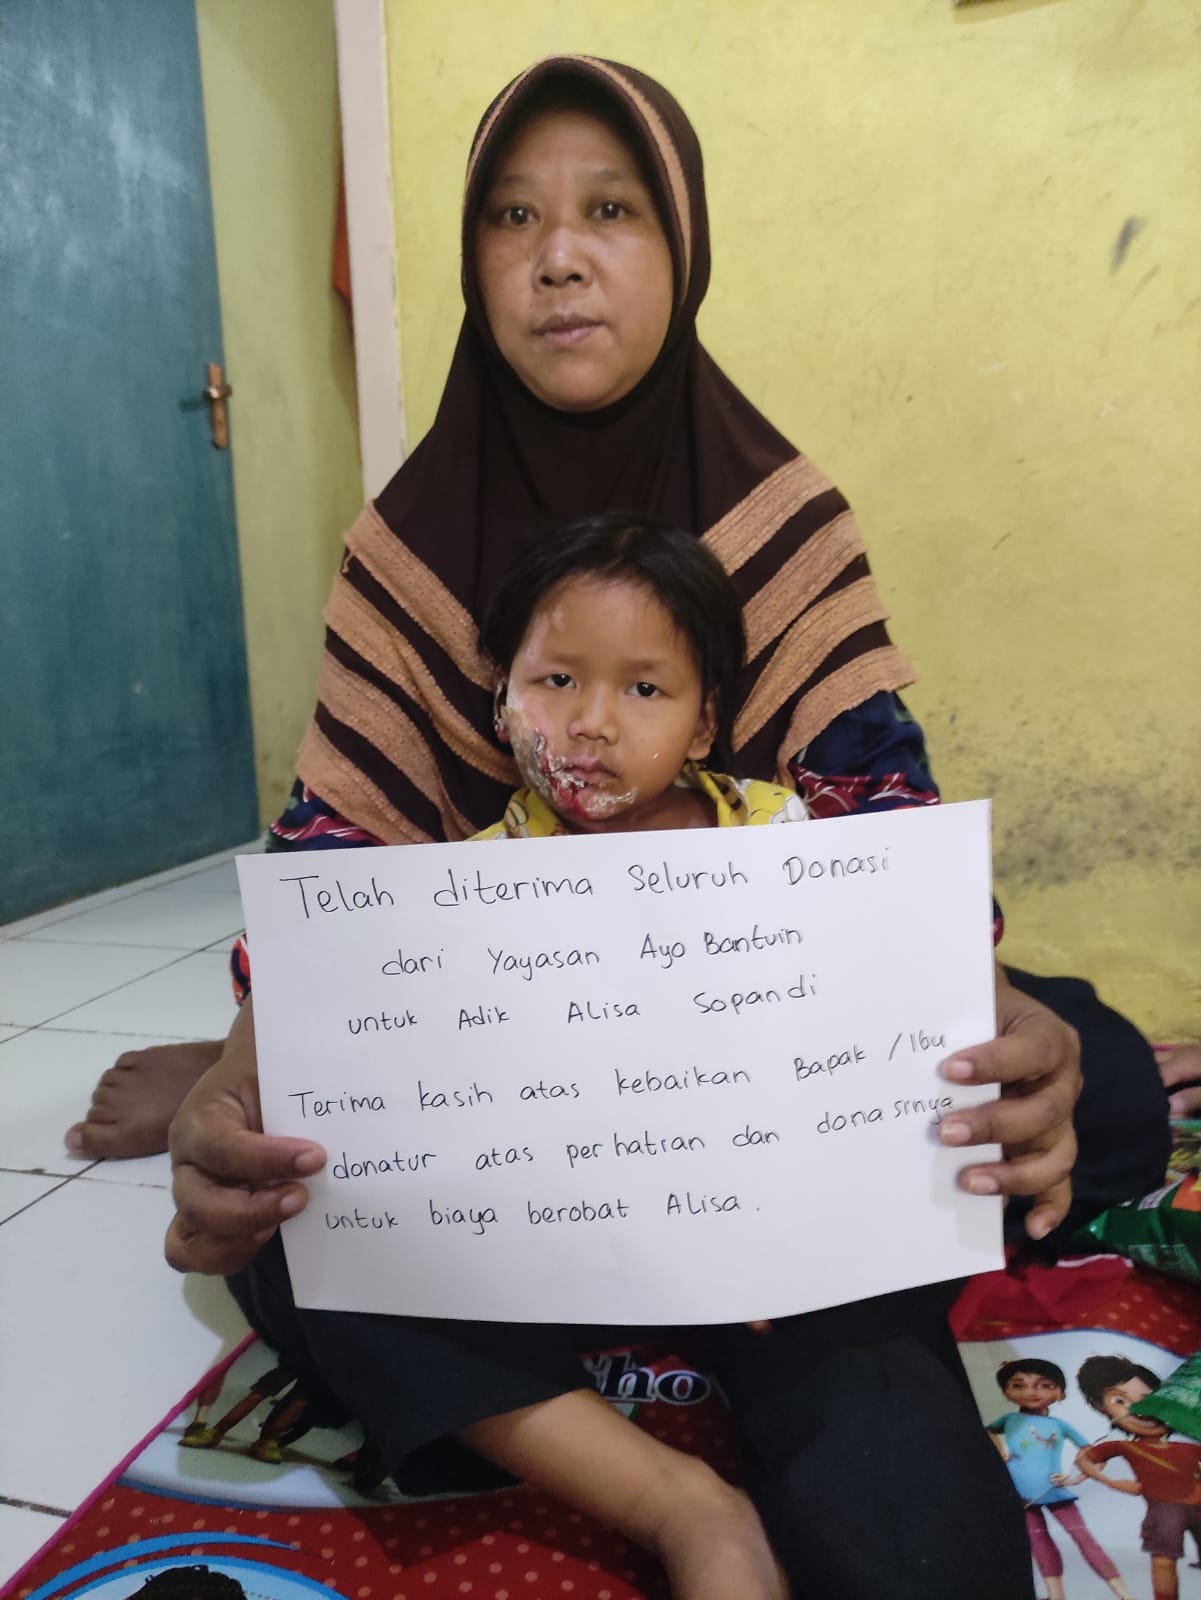 Telah diterima Seluruh Donasi
dari Yayasan Ayo Bantuin
untuk Adik Alisa Sopandi
Terima kasih atas kebaikan Bapak / Ibu
donatur atas perhatian dan donasinya
untuk biaya berobat Alisa.
ho